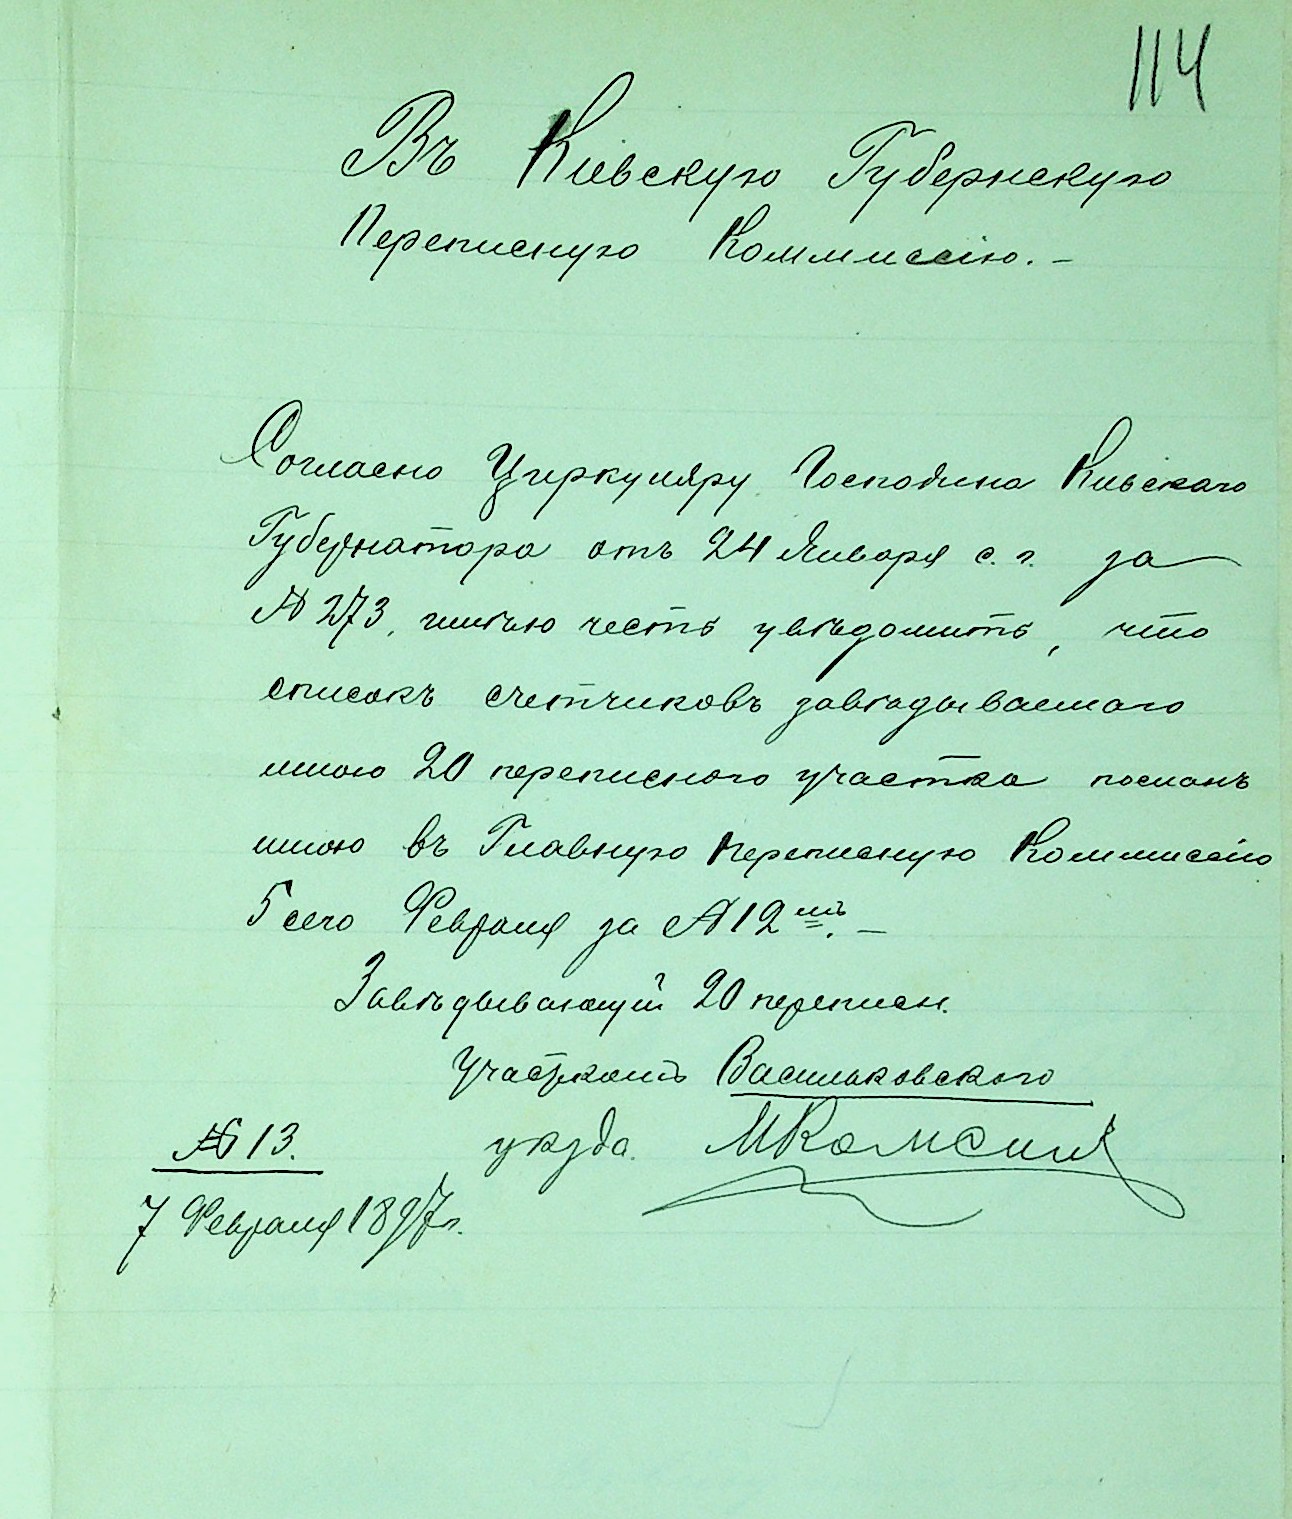 114
Въ Кіевскую Губернскую
Переписную Коммиссію. -
Согласно Циркуляру Господина Кіевскаго
Губернатора отъ 24 Января с. г. за
№ 273, имѣю честь увѣдомить, что
списокъ счетчиковъ завѣдываемаго
мною 20 переписного участка посланъ
мною въ Главную Переписную Коммиссію
5 сего Февраля за № 12 мъ. -
Завѣдывающій 20 переписн.
участкомъ Васильковского
уѣзда.
№ 13.
7 Февраля 1897 г.